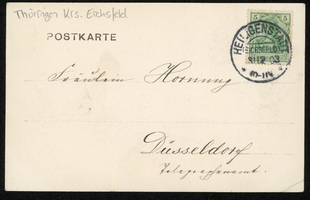 Thüringen Krs. Eichsfeld
POSTKARTE
5 5
HEILIGENSTADT
(EICHSFELD)
10-11V
Fräulein Hornung
Düsseldorf
Telegraphenamt.